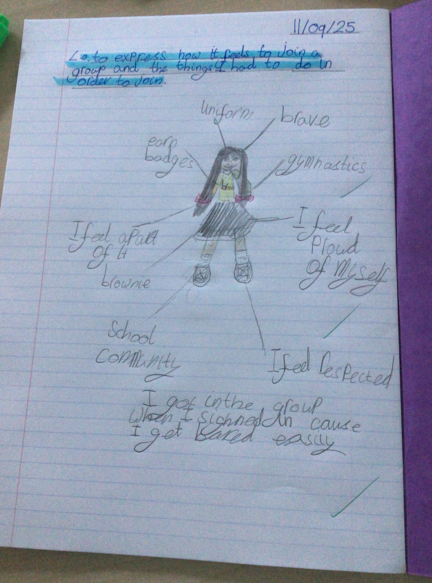 11/09/25
L.o. to express how it feels to join a
group and the things I had to do in
order to join.
uniform
brave
earn
badges
gymnastics
I feel apart
of it
I feel
Ploud
of myself
brownie
School
community
I feel respected
I got in the group
When I sighned in cause
I get bored easily